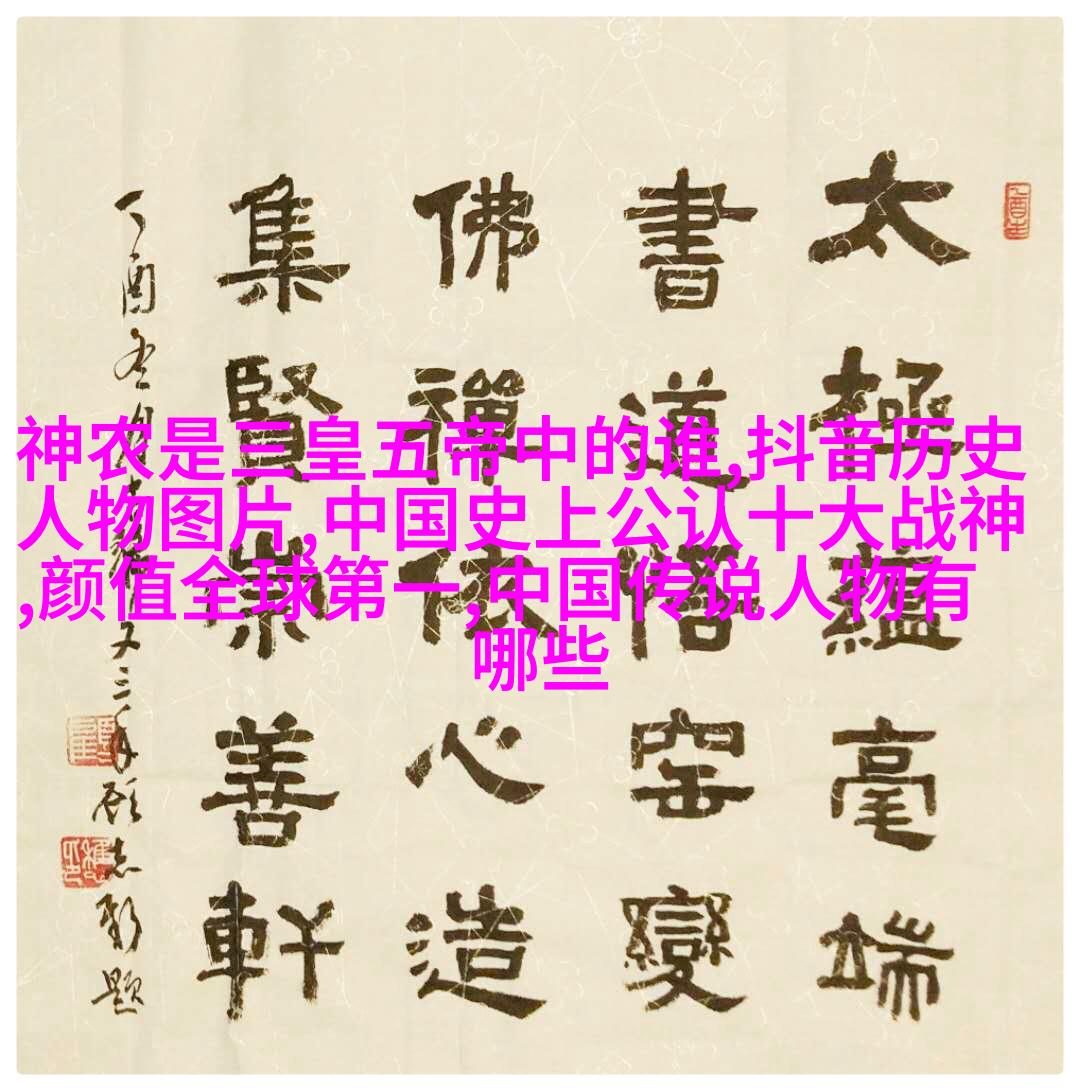 太極蘊毫端
書道悟窑變
佛禪依心造
集賢崇善軒
神农是三皇五帝中的谁,抖音历史
人物图片,中国史上公认十大战神
,颜值全球第一,中国传说人物有
哪些